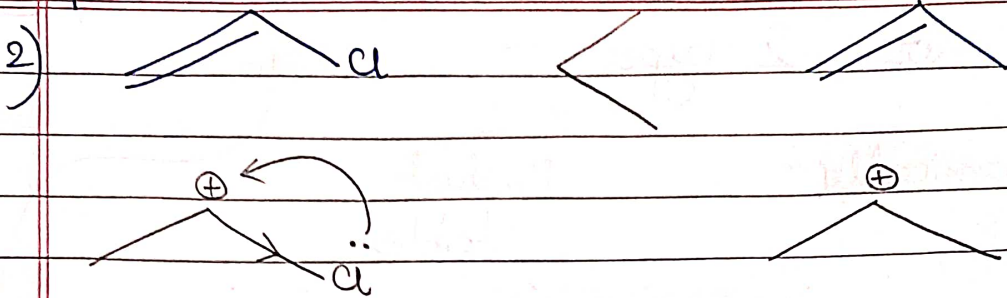 2) Cl <
⊕ ⊕
.. Cl